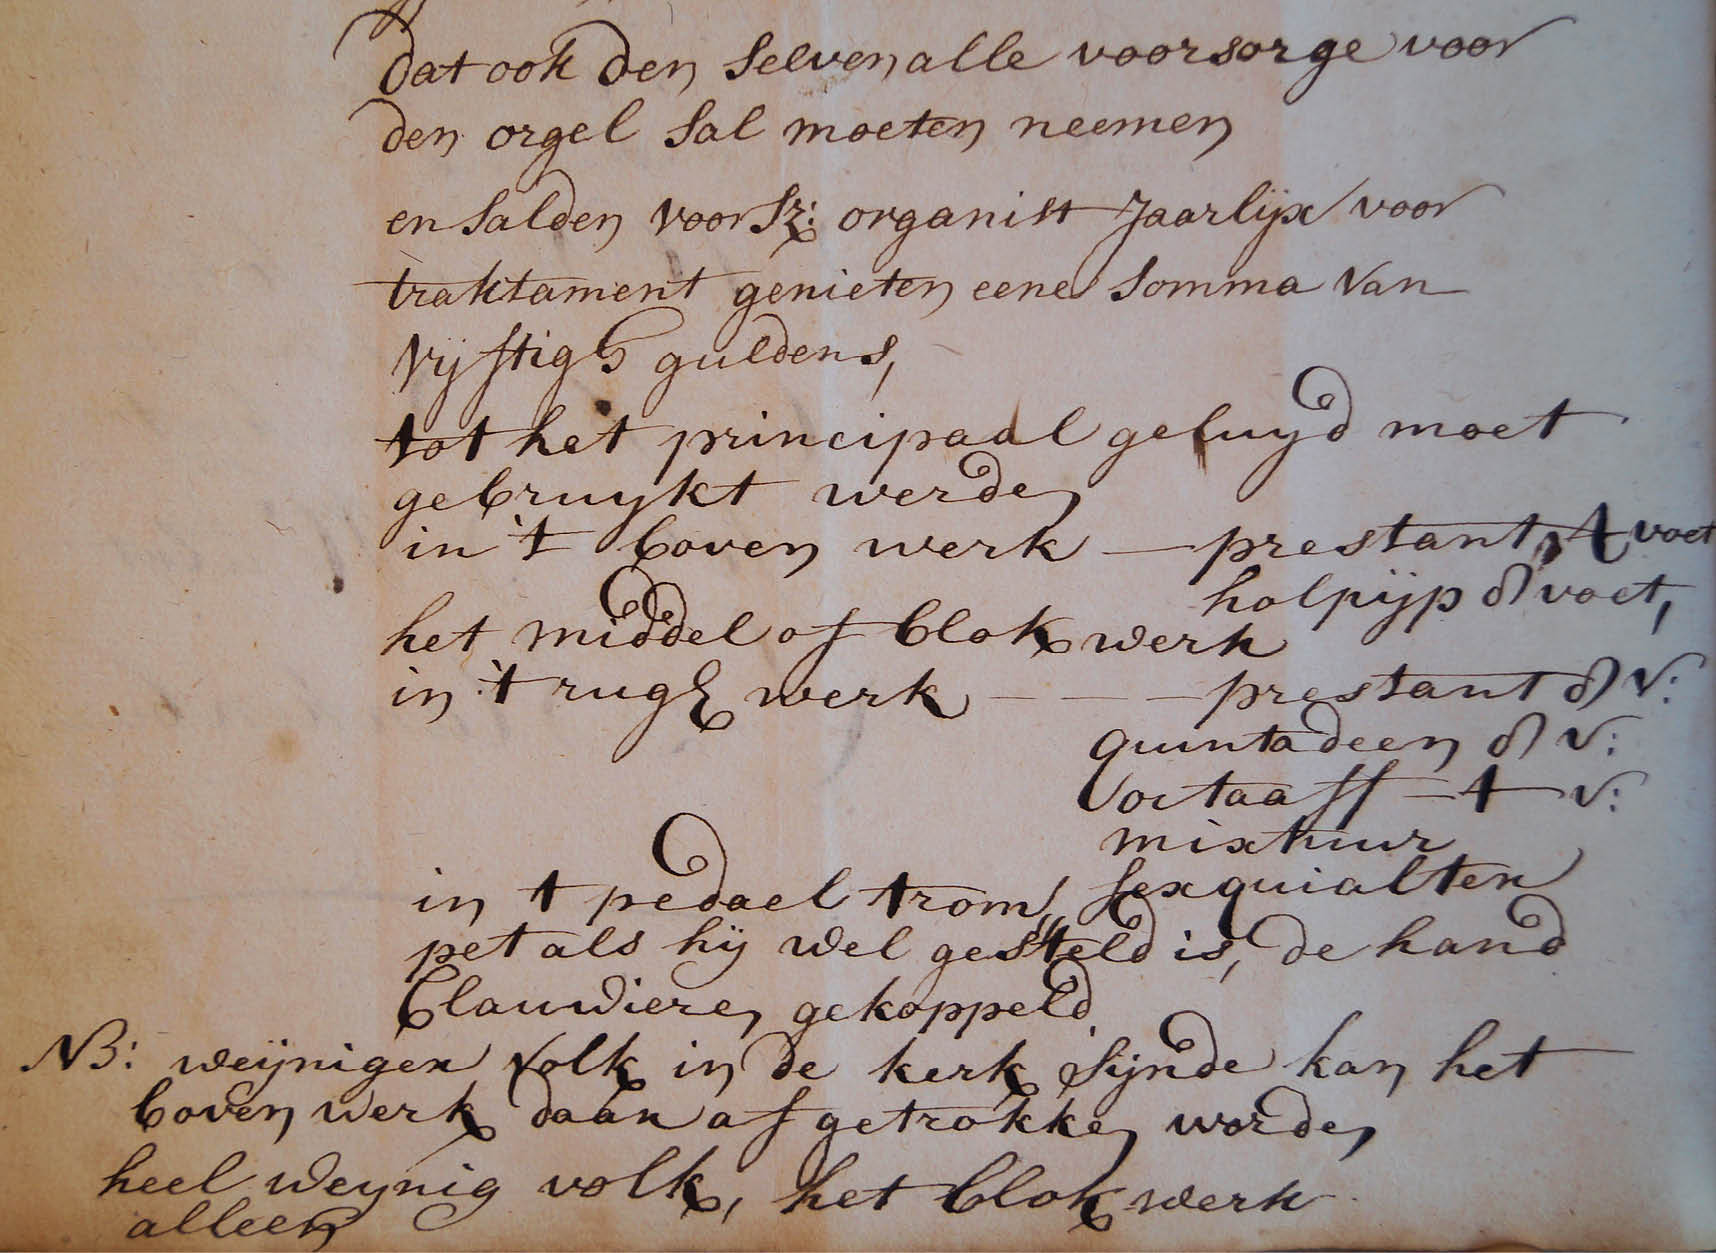 dat ook den selven alle voorsorge voor
den orgel sal moeten neemen
en sal den voorsz: organist Jaarlijx voor
traktament genieten eene somma van
vijftigh guldens,
tot het principaal geluyd moet
gebruykt werden
in 't boven werk — prestant, 4 voet
holpijp 8 voet,
het middel of blok werk
in 't rugh werk — — — prestant 8 v:
quintadeen 8 v:
octaaff — 4 v:
mixtuur
sexquialter
in t pedael trom„
pet als hij wel gesteld is, de hand
Clauwieren gekoppeld
NB: weijniger volk in de kerk sijnde kan het
boven werk daar af getrokken worden
heel weynig volk, het blok werk
alleen